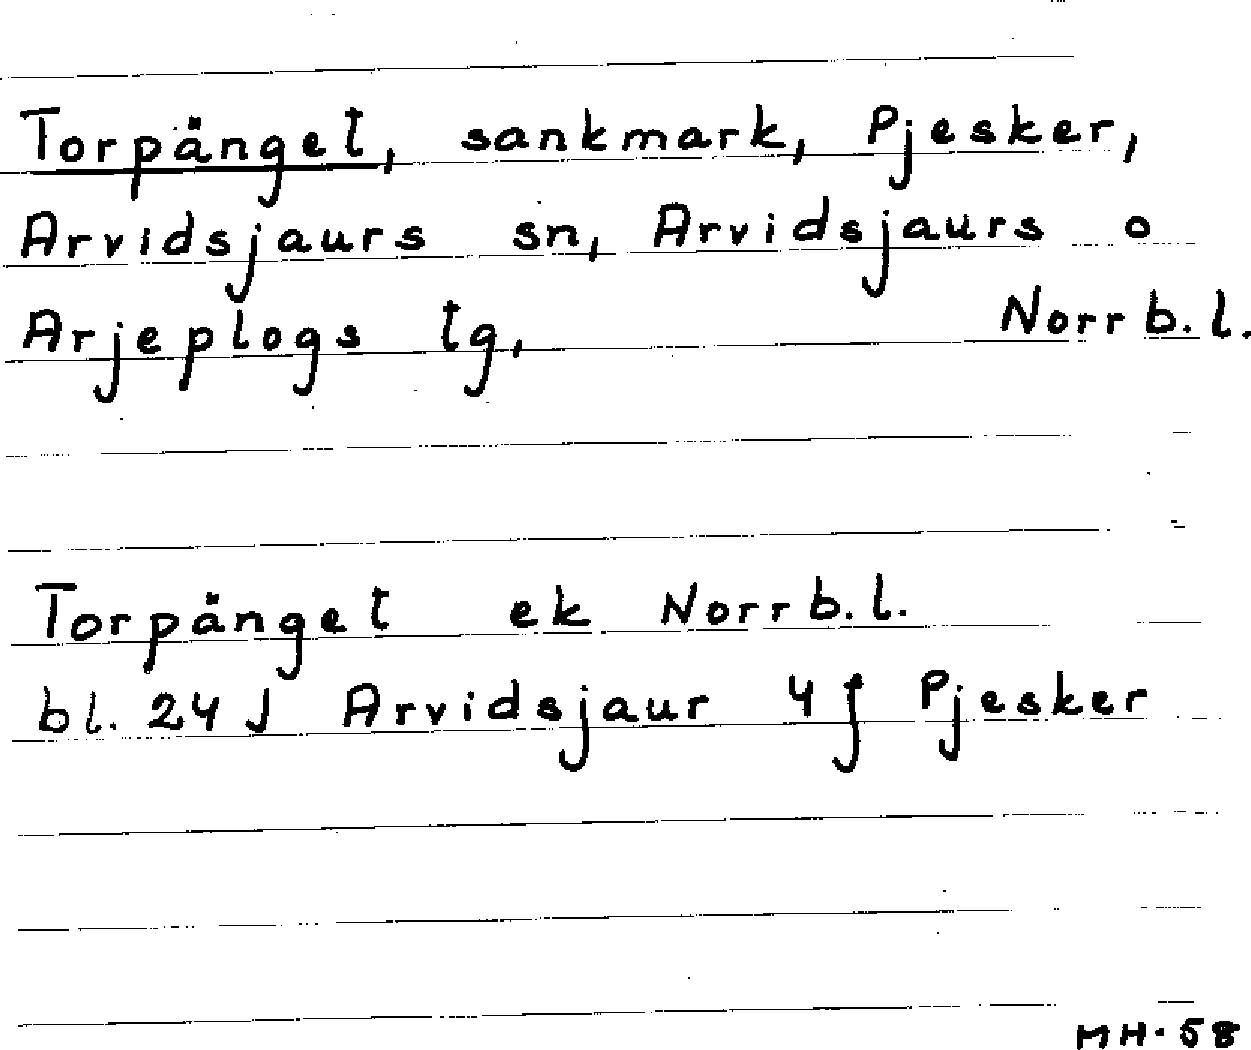 Torpänget, sankmark, Pjesker,
Arvidsjaurs sn, Arvidsjaurs o
Arjeplogs tg, Norrb.l.
Torpänget ek Norrb.l.
bl. 24 J Arvidsjaur 4 f Pjesker
MH-58